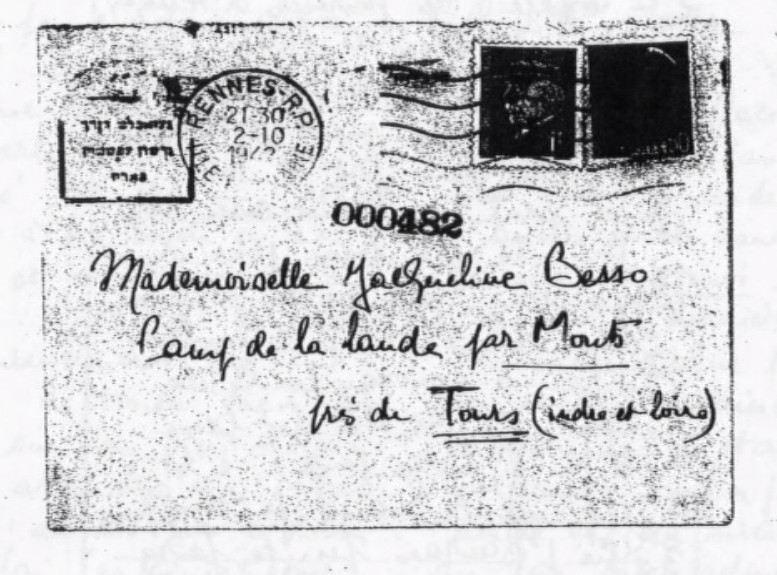 RENNES-R.P.
21-30
2-10
000482
Mademoiselle Jacqueline Besso
Camp de la lande par Monts
près de Tours (indre et loire)